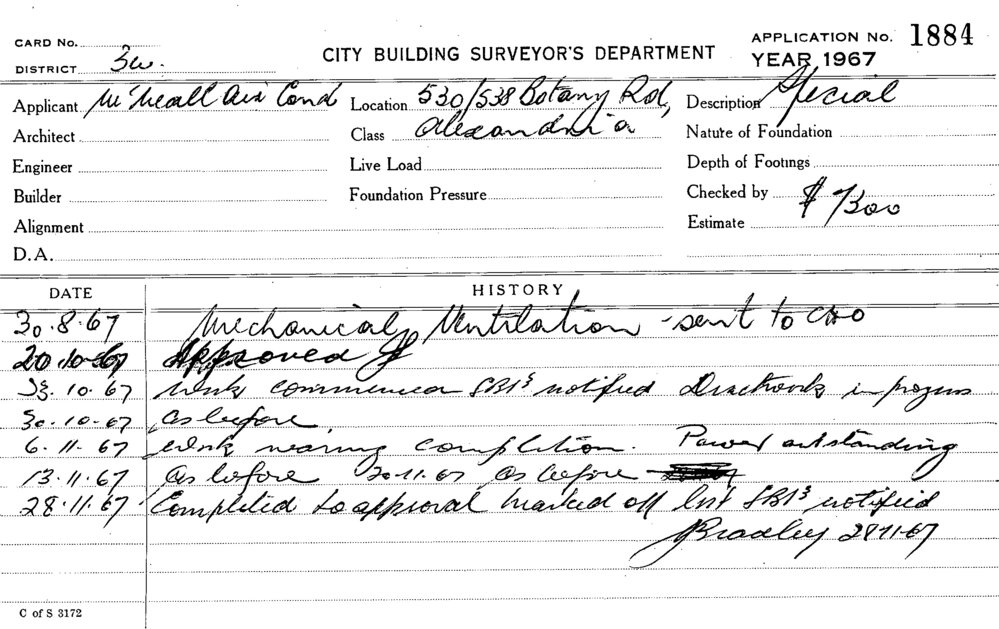 CARD No.
CITY BUILDING SURVEYOR'S DEPARTMENT
APPLICATION No. 1884
DISTRICT 3w.
YEAR 1967
Applicant McNeall Air Cond Location 530/538 Botany Rd, Description Special
Architect Class Alexandria Nature of Foundation
Engineer Live Load Depth of Footings
Builder Foundation Pressure Checked by
Alignment Estimate $7300
D.A.
DATE HISTORY
30.8.67 Mechanical Ventilation - sent to CHO
20.10.67 Approved
23.10.67 Work commenced SBI's notified Ductwork in progress
30.10.67 As before
6.11.67 Work nearing completion. Power outstanding
13.11.67 As before 20.11.67 As before
28.11.67 Completed to approval marked off list SBI's notified
Bradley 28.11.67
C of S 3172